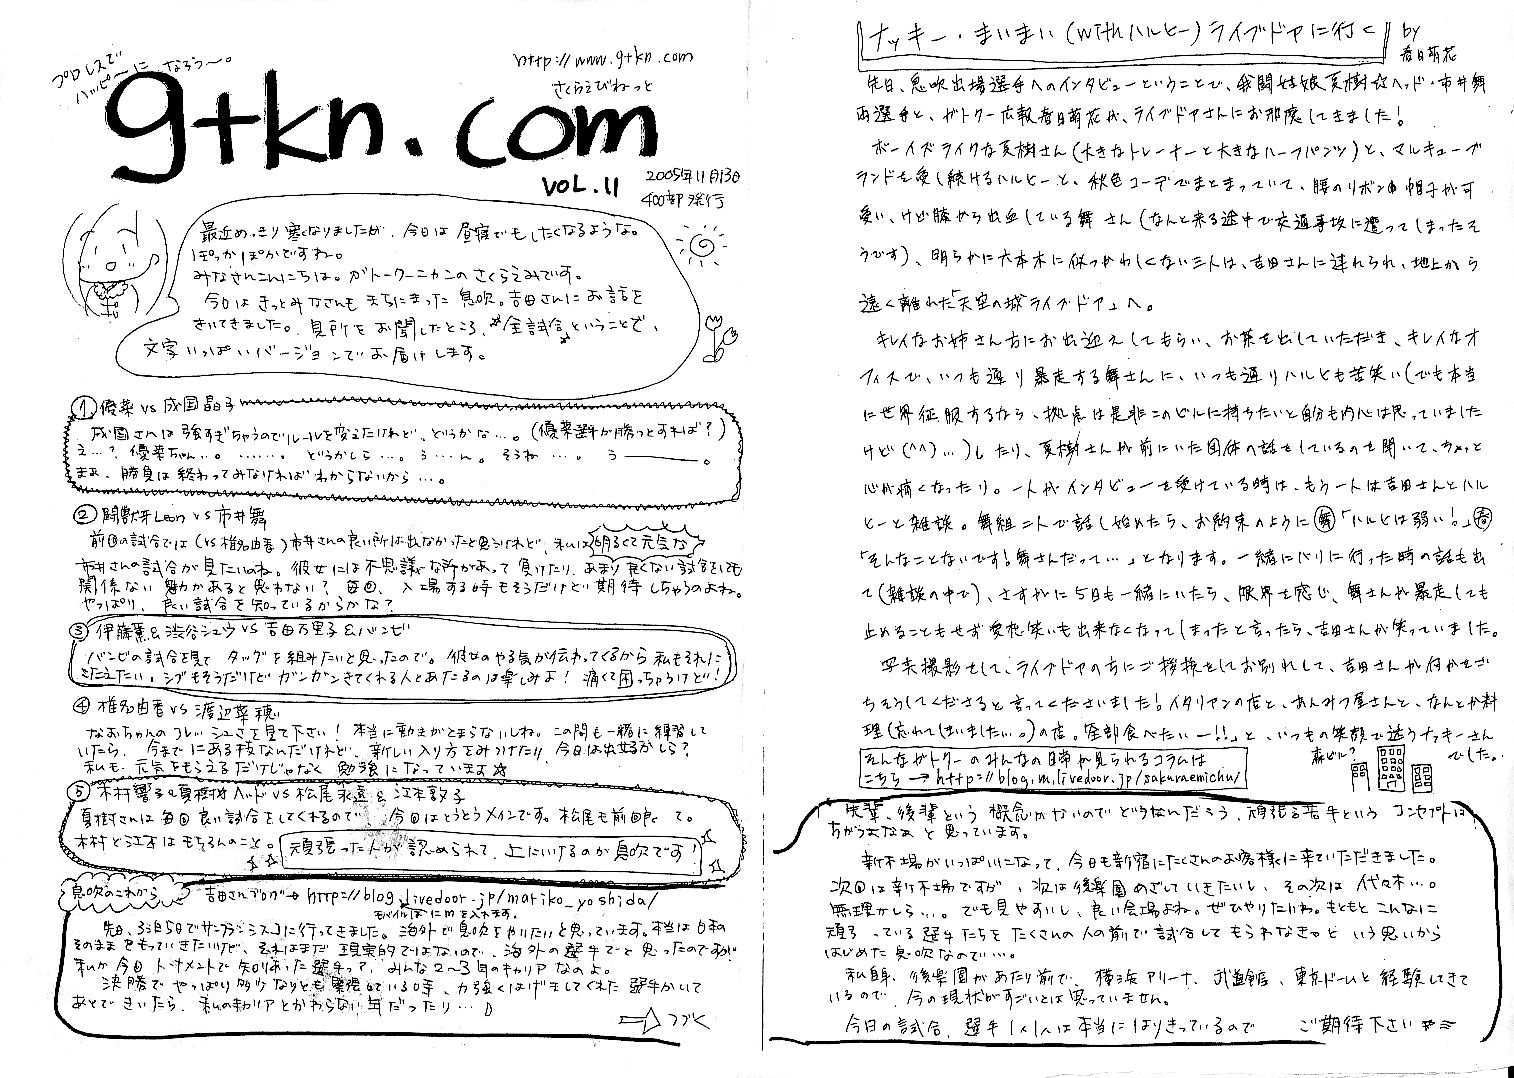 プロレスで
ハッピ〜に なろう〜。
http://www.gtkn.com
さくらえびねっと
gtkn.com
VOL.11
2005年11月13日
400部発行
最近めっきり寒くなりましたが、今日は昼寝でもしたくなるような。
ぽっかぽかですね。
みなさんこんにちは。ガトークーニカンのさくらえみです。
今日はきっとみなさんもまちにまった息吹。吉田さんにお話を
きいてきました。見所をお聞したところ、"全試合"ということで、
文字いっぱいバージョンでお届けします。
① 優菜 vs 成国晶子
成国さんは強すぎちゃうのでルールを変えたけれど、どうかな…。(優菜選手が勝つとすれば?)
え…? 優菜ちゃん…。 ……。 どうかしら…。う…ん。そうね…。 う———。
まぁ、勝負は終わってみなければわからないから…。
② 闘獣牙Leon vs 市井舞
前回の試合では(vs 椎名由香)市井さんの良い所は出なかったと思うけれど、私は明るくて元気な
市井さんの試合が見たいわね。彼女には不思議な所があって負けたり、あまり良くない試合をしても
関係ない魅力があると思わない? 毎回、入場する時もそうだけど期待しちゃうのよね。
やっぱり、良い試合を知っているからかな?
③ 伊藤薫&渋谷シュウ vs 吉田万里子&バンビ
バンビの試合を見て タッグを組みたいと思ったので。彼女のやる気が伝わってくるから私もそれに
こたえたい。シブもそうだけど ガンガンきてくれる人とあたるのは楽しみよ! 痛くて困っちゃうけど!
④ 椎名由香 vs 渡辺菜穂
なおちゃんのフレッシュさを見て下さい! 本当に動きがとまらないしね。この間も一緒に練習して
いたら、今までにある技なんだけれど、新しい入り方をみつけたり、今日は出せるかしら?
私も、元気をもらえるだけじゃなく 勉強になっています☆
⑤ 木村響子&夏樹☆ヘッド vs 松尾永遠&江本敦子
夏樹さんは毎回良い試合をしてくれるので 今回はとうとうメインです。松尾も前回 て。
木村と江本はもちろんのこと。 頑張った人が認められて、上にいけるのが息吹です!
息吹のこれから
吉田さんブログ→http://blog.livedoor.jp/mariko_yoshida/
モバイルはにmを入れます。
先日、3泊5日でサンフランシスコに行ってきました。海外で息吹をやりたいと思っています。本当は日本の
そのままをもっていきたいけど、それはまだ 現実的ではないので、海外の選手でと思ったのですが!
私が今回 トーナメントで知りあった選手って、みんな2〜3年のキャリアなのよ。
決勝でやっぱり多少なりとも緊張している時、力強くはげましてくれた選手がいて
あとできいたら、私のキャリアとかわらない年だったり…。
つづく
ナッキー・まいまい(withハルヒー)ライブドアに行く by
春日萌花
先日、息吹出場選手へのインタビューということで、我闘姑娘夏樹☆ヘッド・市井舞
両選手と、ガトクー広報春日萌花が、ライブドアさんにお邪魔してきました!
ボーイズライクな夏樹さん(大きなトレーナーと大きなハーフパンツ)と、マルキューブ
ランドを愛し続けるハルヒーと、秋色コーデでまとまっていて、腰のリボンや帽子が可
愛い、けど膝から出血している舞さん(なんと来る途中で交通事故に遭ってしまったそ
うです)、明らかに六本木に似つかわしくない三人は、吉田さんに連れられ、地上から
遠く離れた「天空の城ライブドア」へ。
キレイなお姉さん方にお出迎えしてもらい、お茶を出していただき、キレイなオ
フィスで、いつも通り暴走する舞さんに、いつも通りハルヒも苦笑い(でも本当
に世界征服するなら、拠点は是非このビルに持ちたいと自分も内心は思っていました
けど(^^)…)したり、夏樹さんが前にいた団体の話をしているのを聞いて、ちょっと
心が痛くなったり。一人がインタビューを受けている時は、もう一人は吉田さんとハル
ヒーと雑談。舞組二人で話し始めたら、お約束のように㊟「ハルヒは弱い!」㊟
「そんなことないです!舞さんだって…」となります。一緒にバリに行った時の話も出
て(雑談の中で)、さすがに5日も一緒にいたら、限界を感じ、舞さんが暴走しても
止めることもせず愛想笑いも出来なくなってしまったと言ったら、吉田さんが笑っていました。
写真撮影をして、ライブドアの方にご挨拶をしてお別れして、吉田さんが何かをご
ちそうしてくださると言ってくださいました! イタリアンの店と、あんみつ屋さんと、なんとか料
理(忘れてしまいました。)の店。「全部食べたいー!!」と、いつもの笑顔で迷うナッキーさん
でした。
そんなガトクーのみんなの日常が見られるコラムは
こちら→http://blog.m.livedoor.jp/sakuraemichu/
森ビル?
先輩、後輩という概念がないのでどうなんだろう、頑張る若手というコンセプトは
ちがうよなぁと思っています。
新木場がいっぱいになって、今日も新宿にたくさんのお客様に来ていただきました。
次回は新木場ですが、次は後楽園めざしていきたいし、その次は 代々木…。
無理かしら…。でも見やすいし、良い会場よね。ぜひやりたいわ。もともとこんなに
頑張っている選手たちをたくさんの人の前で試合してもらわなきゃという思いから
はじめた息吹なので…。
私自身、後楽園があたり前で、横浜アリーナ、武道館、東京ドームと経験してきて
いるので、今の現状がすごいとは思っていません。
今日の試合、選手1人1人は本当にはりきっているので ご期待下さい